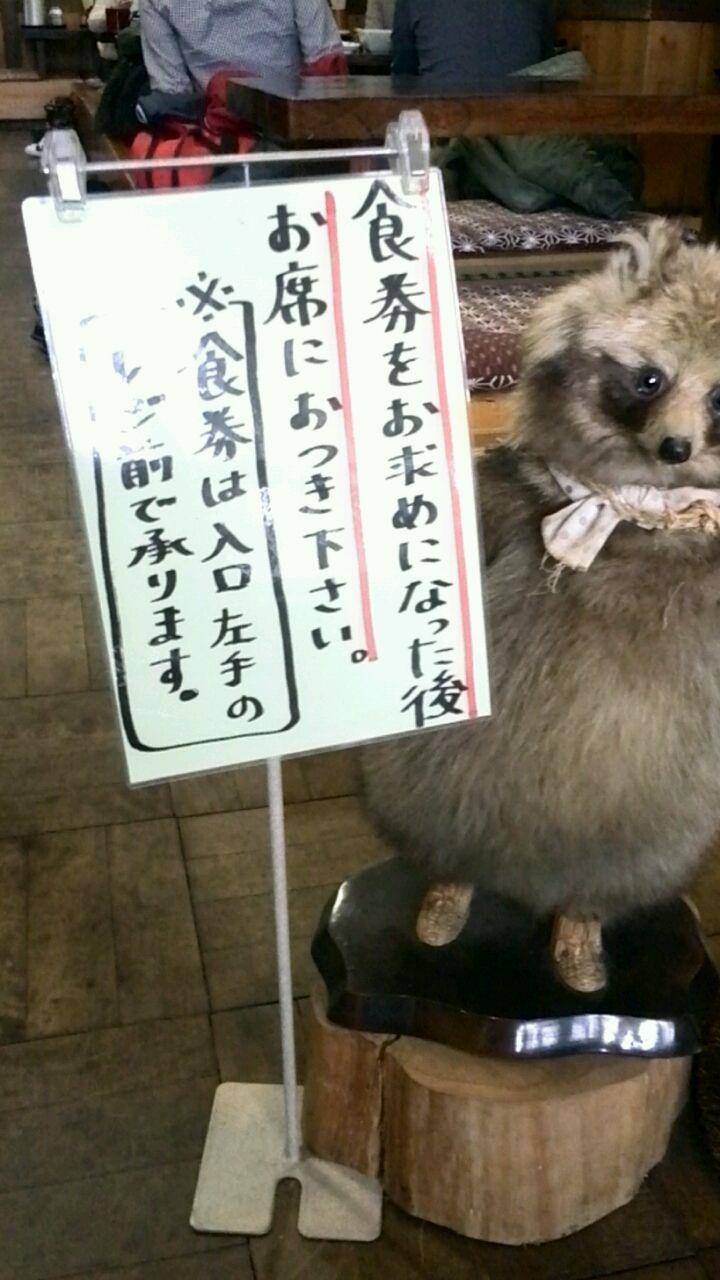 食券をお求めになった後
お席におつき下さい。
※食券は入口左手の
レジ前で承ります。